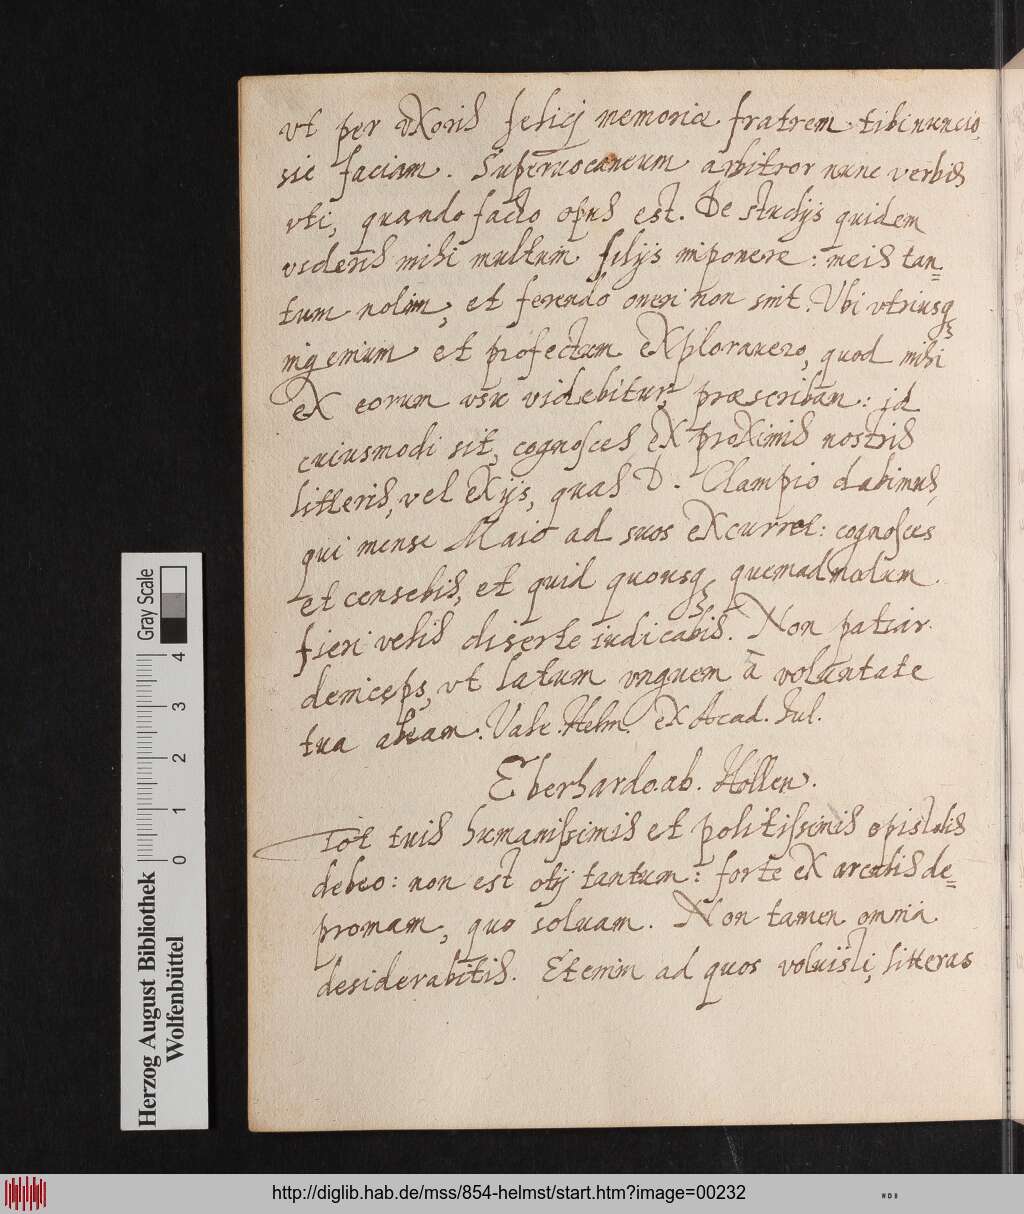 vt per vxoris felicj memoria fratrem tibi nuncio,
sic faciam. Superuocaneum arbitror nunc verbis
vti, quando facto opus est. De studijs quidem
videris mihi multum filijs imponere: meis tan=
tum nolim, et ferendo oneri non sint. Vbi vtriusq;
ingenium et profectum explorauero, quod mihi
ex eorum vsu videbitur, præscribam: id
cuiusmodi sit, cognosces ex proximis nostris
litteris, vel ex ijs, quas D. Clampio dabimus,
qui mense Maio ad suos excurret: cognosces
et censebis, et quid quousq; quemadmodum
fieri velis diserte iudicabis. Non patiar
deinceps, vt latum vnguem à voluntate
tua abeam. Vale. Helm. ex Acad. Jul.
Eberhardo. ab. Hollen.
Tot tuis humanissimis et politissimis epistolis
debeo: non est otij tantum: forte ex arcabis de=
promam, quo soluam. Non tamen omnia
desiderabitis. Etenim ad quos voluisti, litteras
Gray Scale
0 1 2 3 4
Herzog August Bibliothek
Wolfenbüttel
http://diglib.hab.de/mss/854-helmst/start.htm?image=00232